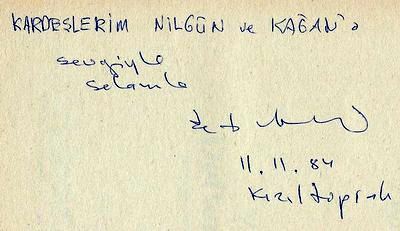 KARDEŞLERİM NİLGÜN ve KAĞAN'a
sevgiyle
selamla
11.11.84
Kızıltoprak